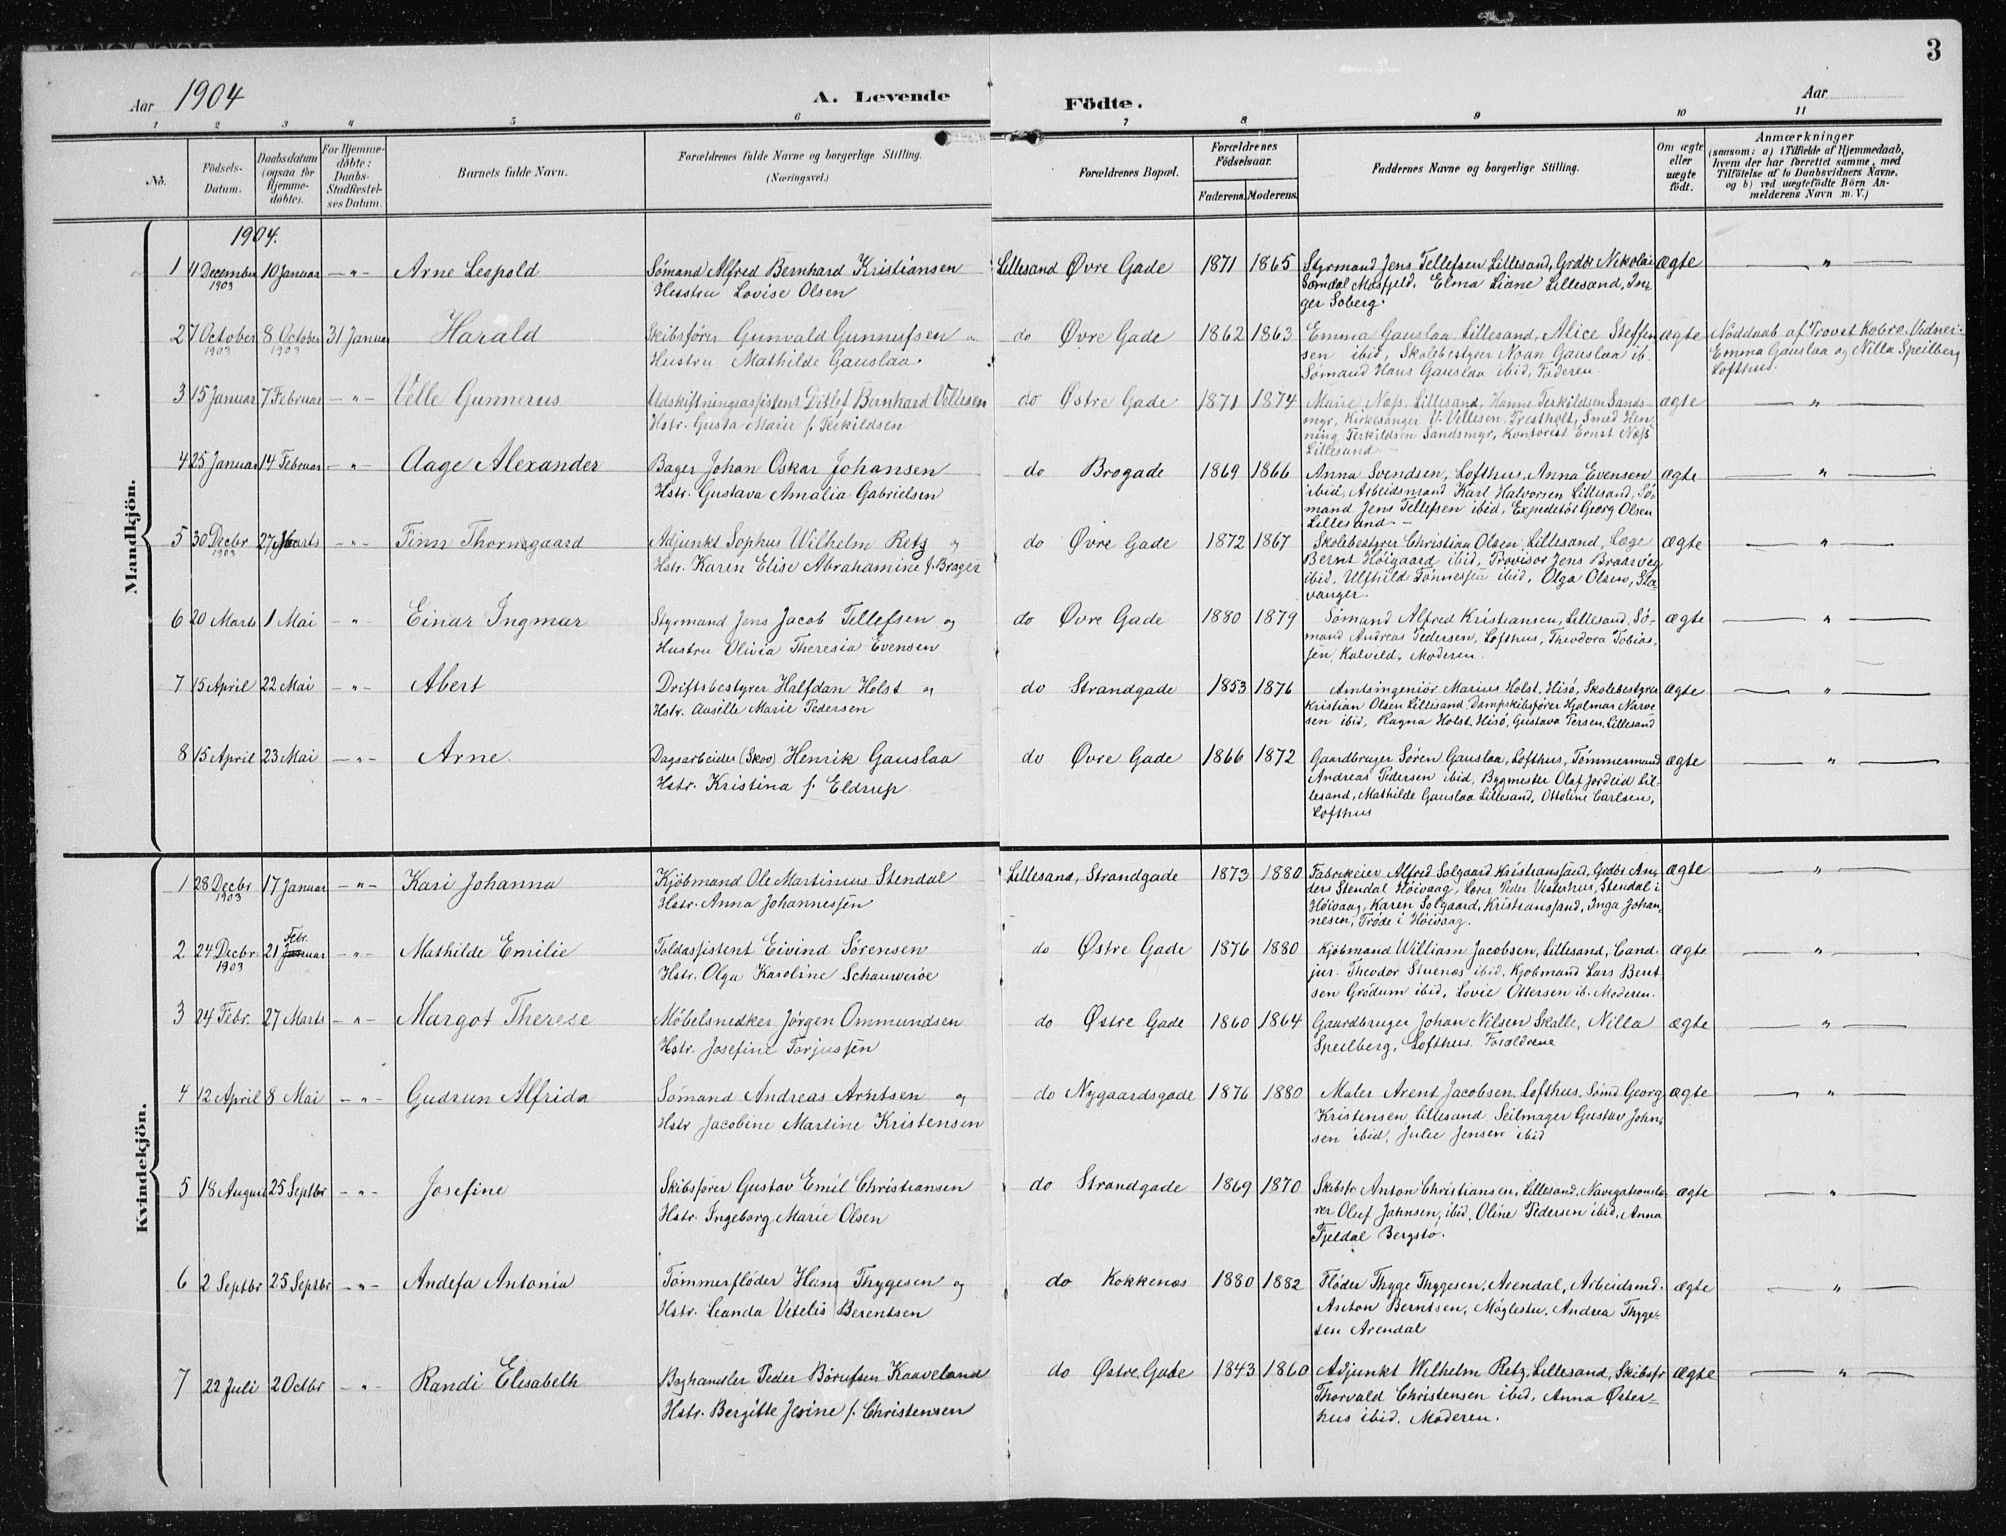 3
Aar 1904 A. Levende Födte. Aar
1 2 3 4 5 6 7 8 9 10 11
No.
Födsels-Datum.
Daabsdatum (ogsaa for Hjemmedøbte).
For Hjemmedøbte: Daabs-Stadfestelses Datum.
Barnets fulde Navn.
Forældrenes fulde Navne og borgerlige Stilling.
(Næringsvei.)
Forældrenes Bopæl.
Forældrenes Födselsaar.
Faderens. Moderens.
Faddernes Navne og borgerlige Stilling.
Om ægte eller uægte födt.
Anmærkninger
(saasom: a) i Tilfælde af Hjemmedaab,
hvem der har forrettet samme, med
Tilföielse af to Daabsvidners Navne.
og b) ved uægtefödte Börn Anmelderens Navn m. V.)
Mandkjön.
1904.
1 11 December 1903 10 Januar —„— Arne Leopold Sømand Alfred Bernhard Kristiansen Lillesand Øvre Gade 1871 1865 Styrmand Jens Tellefsen Lillesand, Grdbr Nikolai ægte — „ —
Hustru Lovise Olsen Sømdal Mosfjeld, Elma Liane Lillesand, In-
ger Soberg.
2 7 October 1903 8 October 1903 31 Januar Harald Skibsfører Gunvald Gunnufsen o do Øvre Gade 1862 1863 Emma Gauslaa Lillesand, Alice Steffen ægte Nøddaab af Provst Kobro. Vidner:
Hustru Mathilde Gauslaa. sen ibid, Skolebestyrer Noan Gauslaa ib. Emma Gauslaa og Nilla Speilberg
Sømand Hans Gauslaa ibid, Faderen. Lofthus.
3 15 Januar 7 Februar —„— Velle Gunnerus Udskiftningsassistent Ditlef Bernhard Vellesen do Østre Gade 1871 1874 Marie Næss. Lillesand, Hanne Terkildsen Sands- ægte — „ —
Hstr. Gusta Marie f. Terkildsen myr, Kirkesanger V. Vellesen, Trestholt, Smed Hen-
ning Terkildsen Sandsmyr, Kontorist Ernst Næss
Lillesand —
4 25 Januar 14 Februar —„— Aage Alexander Bager Johan Oskar Johansen do Brogade 1869 1866 Anna Svendsen, Lofthus, Anna Evensen ægte — „ —
Hstr. Gustava Amalia Gabrielsen ibid, Arbeidsmand Karl Halvorsen Lillesand, Sø-
mand Jens Tellefsen ibid, Expeditør Georg Olsen
Lillesand —
5 30 Decbr 1903 27 Marts —„— Finn Thornegaard Adjunkt Sophus Wilhelm Retz „ do Øvre Gade 1872 1867 Skolebestyrer Christian Olsen, Lillesand, Læge ægte — „ —
Hstr. Karen Elise Abrahamine f. Brager Bernt Høigaard ibid, Provisor Jens Braarvig
ibid, Ulfhild Tønnessen ibid, Olga Olsen, Sta-
vanger.
6 20 Marts 1 Mai —„— Einar Ingmar Styrmand Jens Jacob Tellefsen og do Øvre Gade 1880 1879 Sømand Alfred Kristiansen, Lillesand, Sø- ægte — „ —
Hustru Olivia Theresia Evensen mand Andreas Pedersen, Lofthus, Theodora Tobias-
sen, Kalvild. Moderen.
7 15 April 22 Mai —„— Abert Driftsbestyrer Halfdan Holst og do Strandgade 1853 1876 Amtsingeniør Marius Holst, Hisø, Skolebestyrer ægte — „ —
Hstr. Aasille Marie Pedersen Kristian Olsen Lillesand, Dampskibsfører Hjalmar Narve
sen ibid, Ragna Holst Hisø, Gustava Tersen, Lillesand
8 15 April 23 Mai —„— Arne Dagsarbeider (Skov) Henrik Gauslaa do Øvre Gade 1866 1872 Gaardbruger Søren Gauslaa, Lofthus, Tømmermand ægte — „ —
Hstr. Kristina f. Eldrup. Andreas Pedersen ibid, Bygmester Olaf Jordeid Lil-
lesand, Mathilde Gauslaa Lillesand, Ottoline Carlsen,
Lofthus
Kvindekjön.
1 28 Decbr 1903 17 Januar —„— Kari Johanna Kjøbmand Ole Martinius Stendal Lillesand, Strandgade 1873 1880 Fabrikeier Alfred Solgaard, Kristianssand, Grdbr An- ægte — „ —
Hstr. Anna Johannessen ders Stendal Høivaag, Peder Vesterhus, Stendal i
Høivaag, Karen Solgaard, Kristianssand, Inga Johan-
nesen, Trøde i Høivaag.
2 24 Decbr. 1903 21 Januar Febr. —„— Mathilde Emilie Toldassistent Eivind Sørensen do Østre Gade 1876 1880 Kjøbmand William Jacobsen, Lillesand, Cand. ægte — „ —
Hstr. Olga Karoline Schauweroe jur. Theodor Stuenæs ibid, Kjøbmand Lars Bent
sen Grødum ibid, Lovie Ottersen ib. Moderen.
3 24 Febr. 27 Marts —„— Margot Therese Møbelsnedker Jørgen Ommundsen do Østre Gade 1860 1864 Gaardbruger Johan Nilsen Skalle, Nilla ægte — „ —
Hstr. Josefine Torjussen Speilberg, Lofthus. Forældrene
4 12 April 8 Mai —„— Gudrun Alfrida Sømand Andreas Arntsen og do Nygaardsgade 1876 1880 Maler Arent Jacobsen, Lofthus. Sømd Georg ægte — „ —
Hstr Jacobine Martine Kristensen Kristensen Lillesand Seilmager Gustav John-
sen ibid, Julie Jensen ibid
5 18 August 25 Septbr —„— Josefine Skibsfører Gustav Emil Christiansen do Strandgade 1869 1870 Skibsfr Anton Christiansen, Lillesand, Navigationslæ- ægte — „ —
Hstr. Ingeborg Marie Olsen rer Oluf Jahnsen, ibid, Oline Pedersen ibid, Anna
Fjeldal Bergstø.
6 2 Septbr 25 Septbr —„— Andefa Antonia Tømmerfløder Hans Thygesen og do Kokkenes 1880 1882 Fløder Thygge Thygesen, Arendal, Arbeidsmd. ægte — „ —
Hstr. Leanda Vitelis Berentsen Anton Berntsen, Møglestu, Andrea Thyge-
sen Arendal
7 22 Juli 2 Octbr —„— Randi Elisabeth Boghandler Peder Børufsen Kaaveland do Østre Gade 1843 1860 Adjunkt Wilhelm Retz, Lillesand, Skibsfr ægte — „ —
Hstr. Bergitte Jesine f. Christensen Thorvald Christensen ibid, Anna Øster-
hus ibid. Moderen.